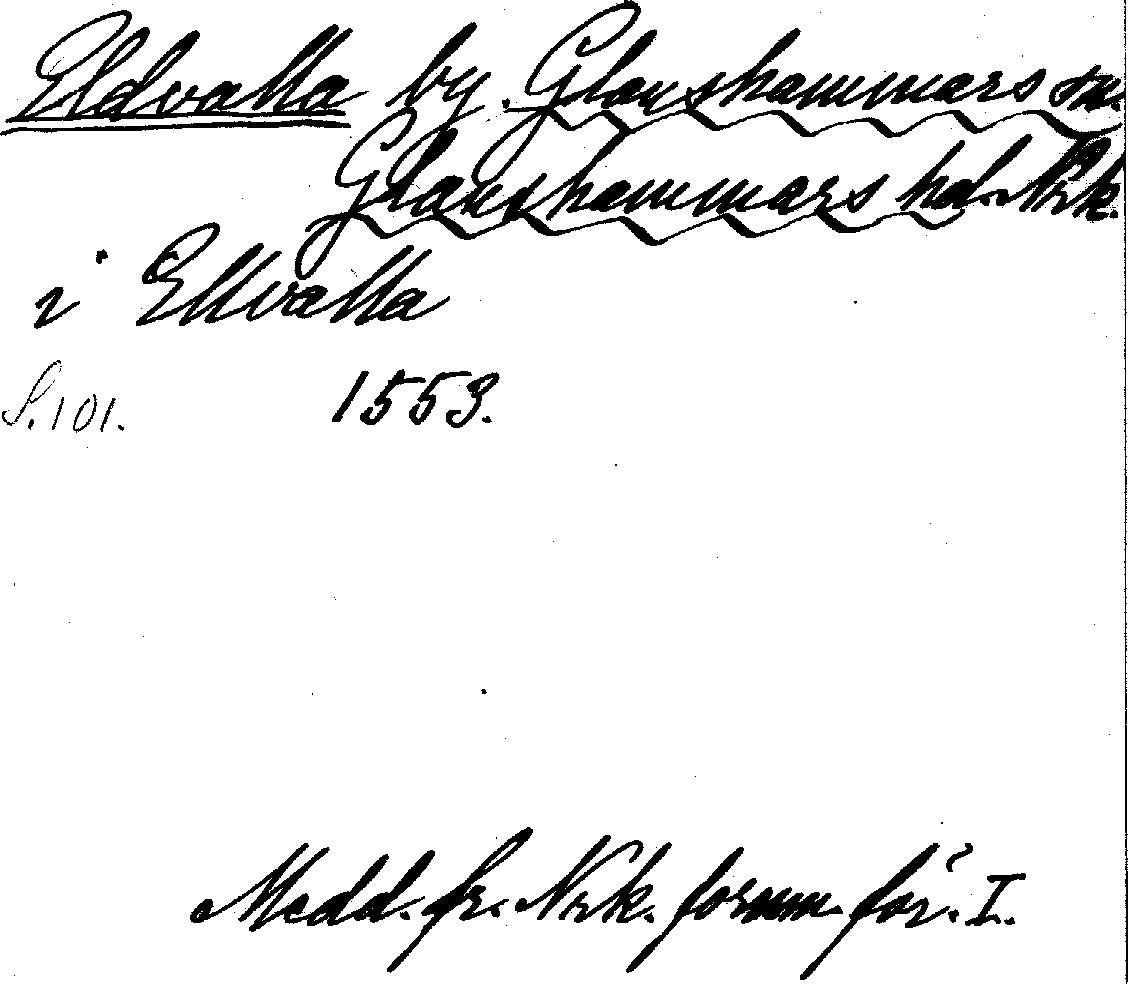 Eldvalla by. Glanshammars sn.
Glanshammars hd. Nrk.
i Ellvalla
S. 101. 1553.
Medd. fr. Nrk. fornm. för. I.